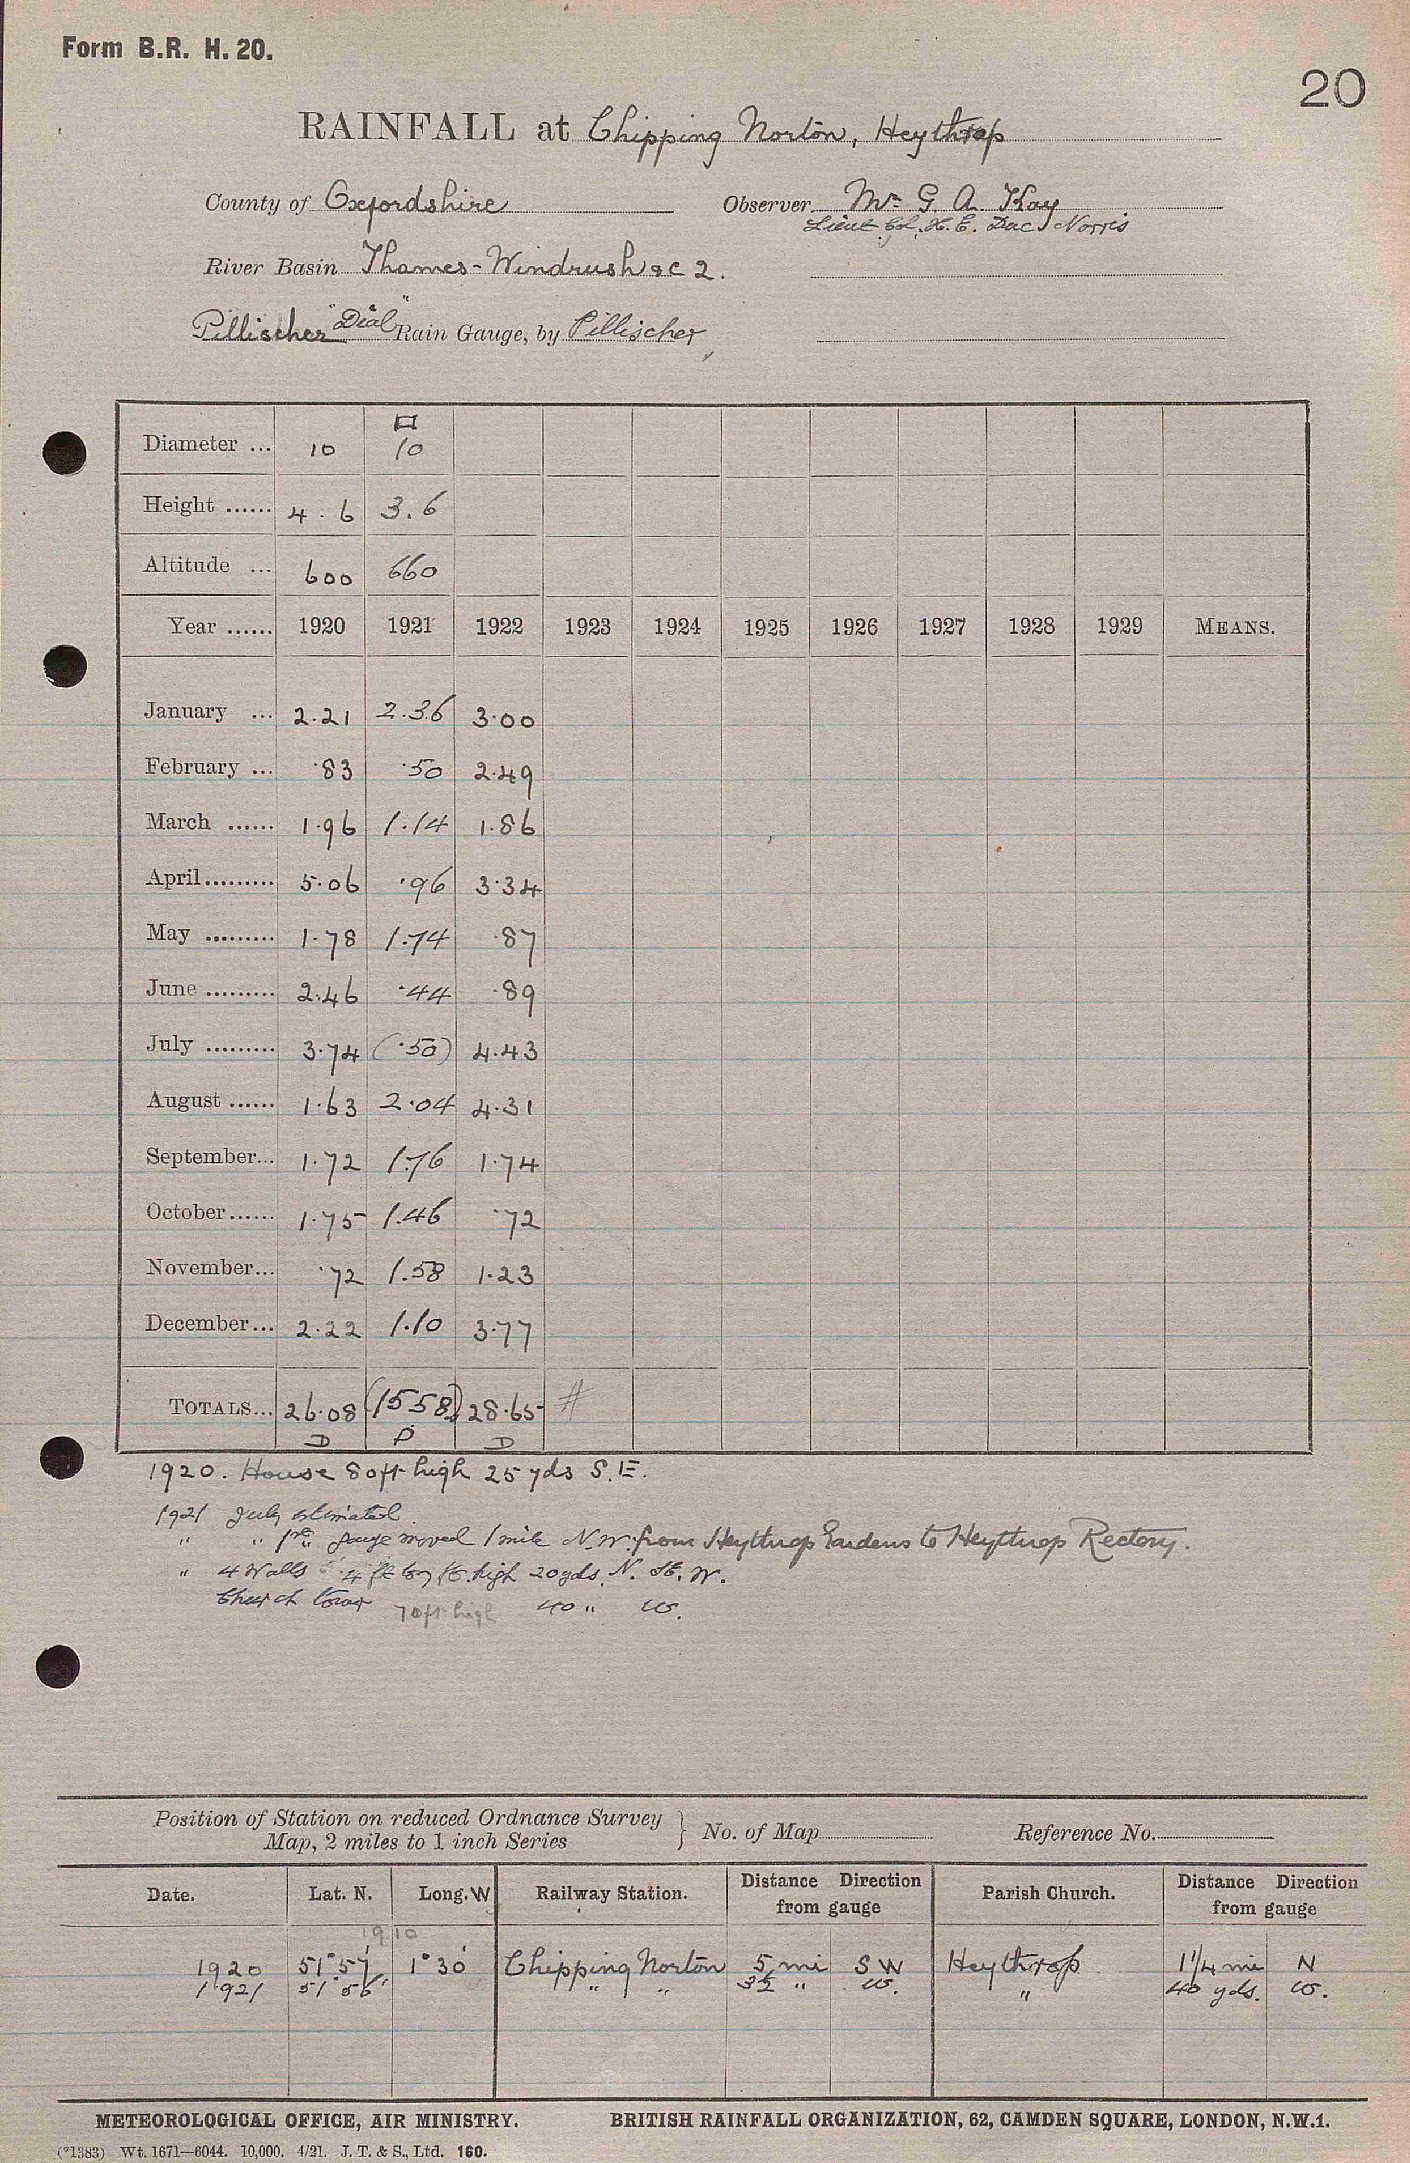 Form B.R. H. 20.
20
RAINFALL at Chipping Norton, Heythrop
County of Oxfordshire Observer Mr. G A. Kay
Lieut Col. H. E. Norris
River Basin Thames - Windrush &c 2.
Pillischer "Dial" Rain Gauge, by Pillischer
Diameter ... 10 10
Height ...... 4.6 3.6
Altitude ... 600 660
Year ...... 1920 1921 1922 1923 1924 1925 1926 1927 1928 1929 MEANS.
January ... 2.21 2.36 3.00
February ... .83 .50 2.49
March ...... 1.96 1.14 1.86
April ......... 5.06 .96 3.34
May ......... 1.78 1.74 .87
June ......... 2.46 .44 .89
July ......... 3.74 (.50) 4.43
August ...... 1.63 2.04 4.31
September... 1.72 1.76 1.74
October ...... 1.75 1.46 .72
November... .72 1.58 1.23
December... 2.22 1.10 3.77
TOTALS... 26.08 (15 58) 28.65 #
D P D
1920. House 80ft high 25 yds S.E.
1921 July estimated.
" " 1st gauge moved 1 mile N.W. from Heythrop Gardens to Heythrop Rectory.
" 4 Walls 4 ft high 20 yds. N. W.
Church tower 70ft high 40 " W.
Position of Station on reduced Ordnance Survey
Map, 2 miles to 1 inch Series } No. of Map Reference No.
Date. Lat. N. Long. W Railway Station. Distance Direction from gauge Parish Church. Distance Direction from gauge
1910
1920 51°57' 1°30' Chipping Norton 5 mi S W Heythrop 1 1/4 mi N
1921 51°56' " " 3½ " W. " 40 yds. W.
METEOROLOGICAL OFFICE, AIR MINISTRY. BRITISH RAINFALL ORGANIZATION, 62, CAMDEN SQUARE, LONDON, N.W.1.
(*1383) Wt. 1671—6044. 10,000. 4/21. J. T. & S., Ltd. 160.